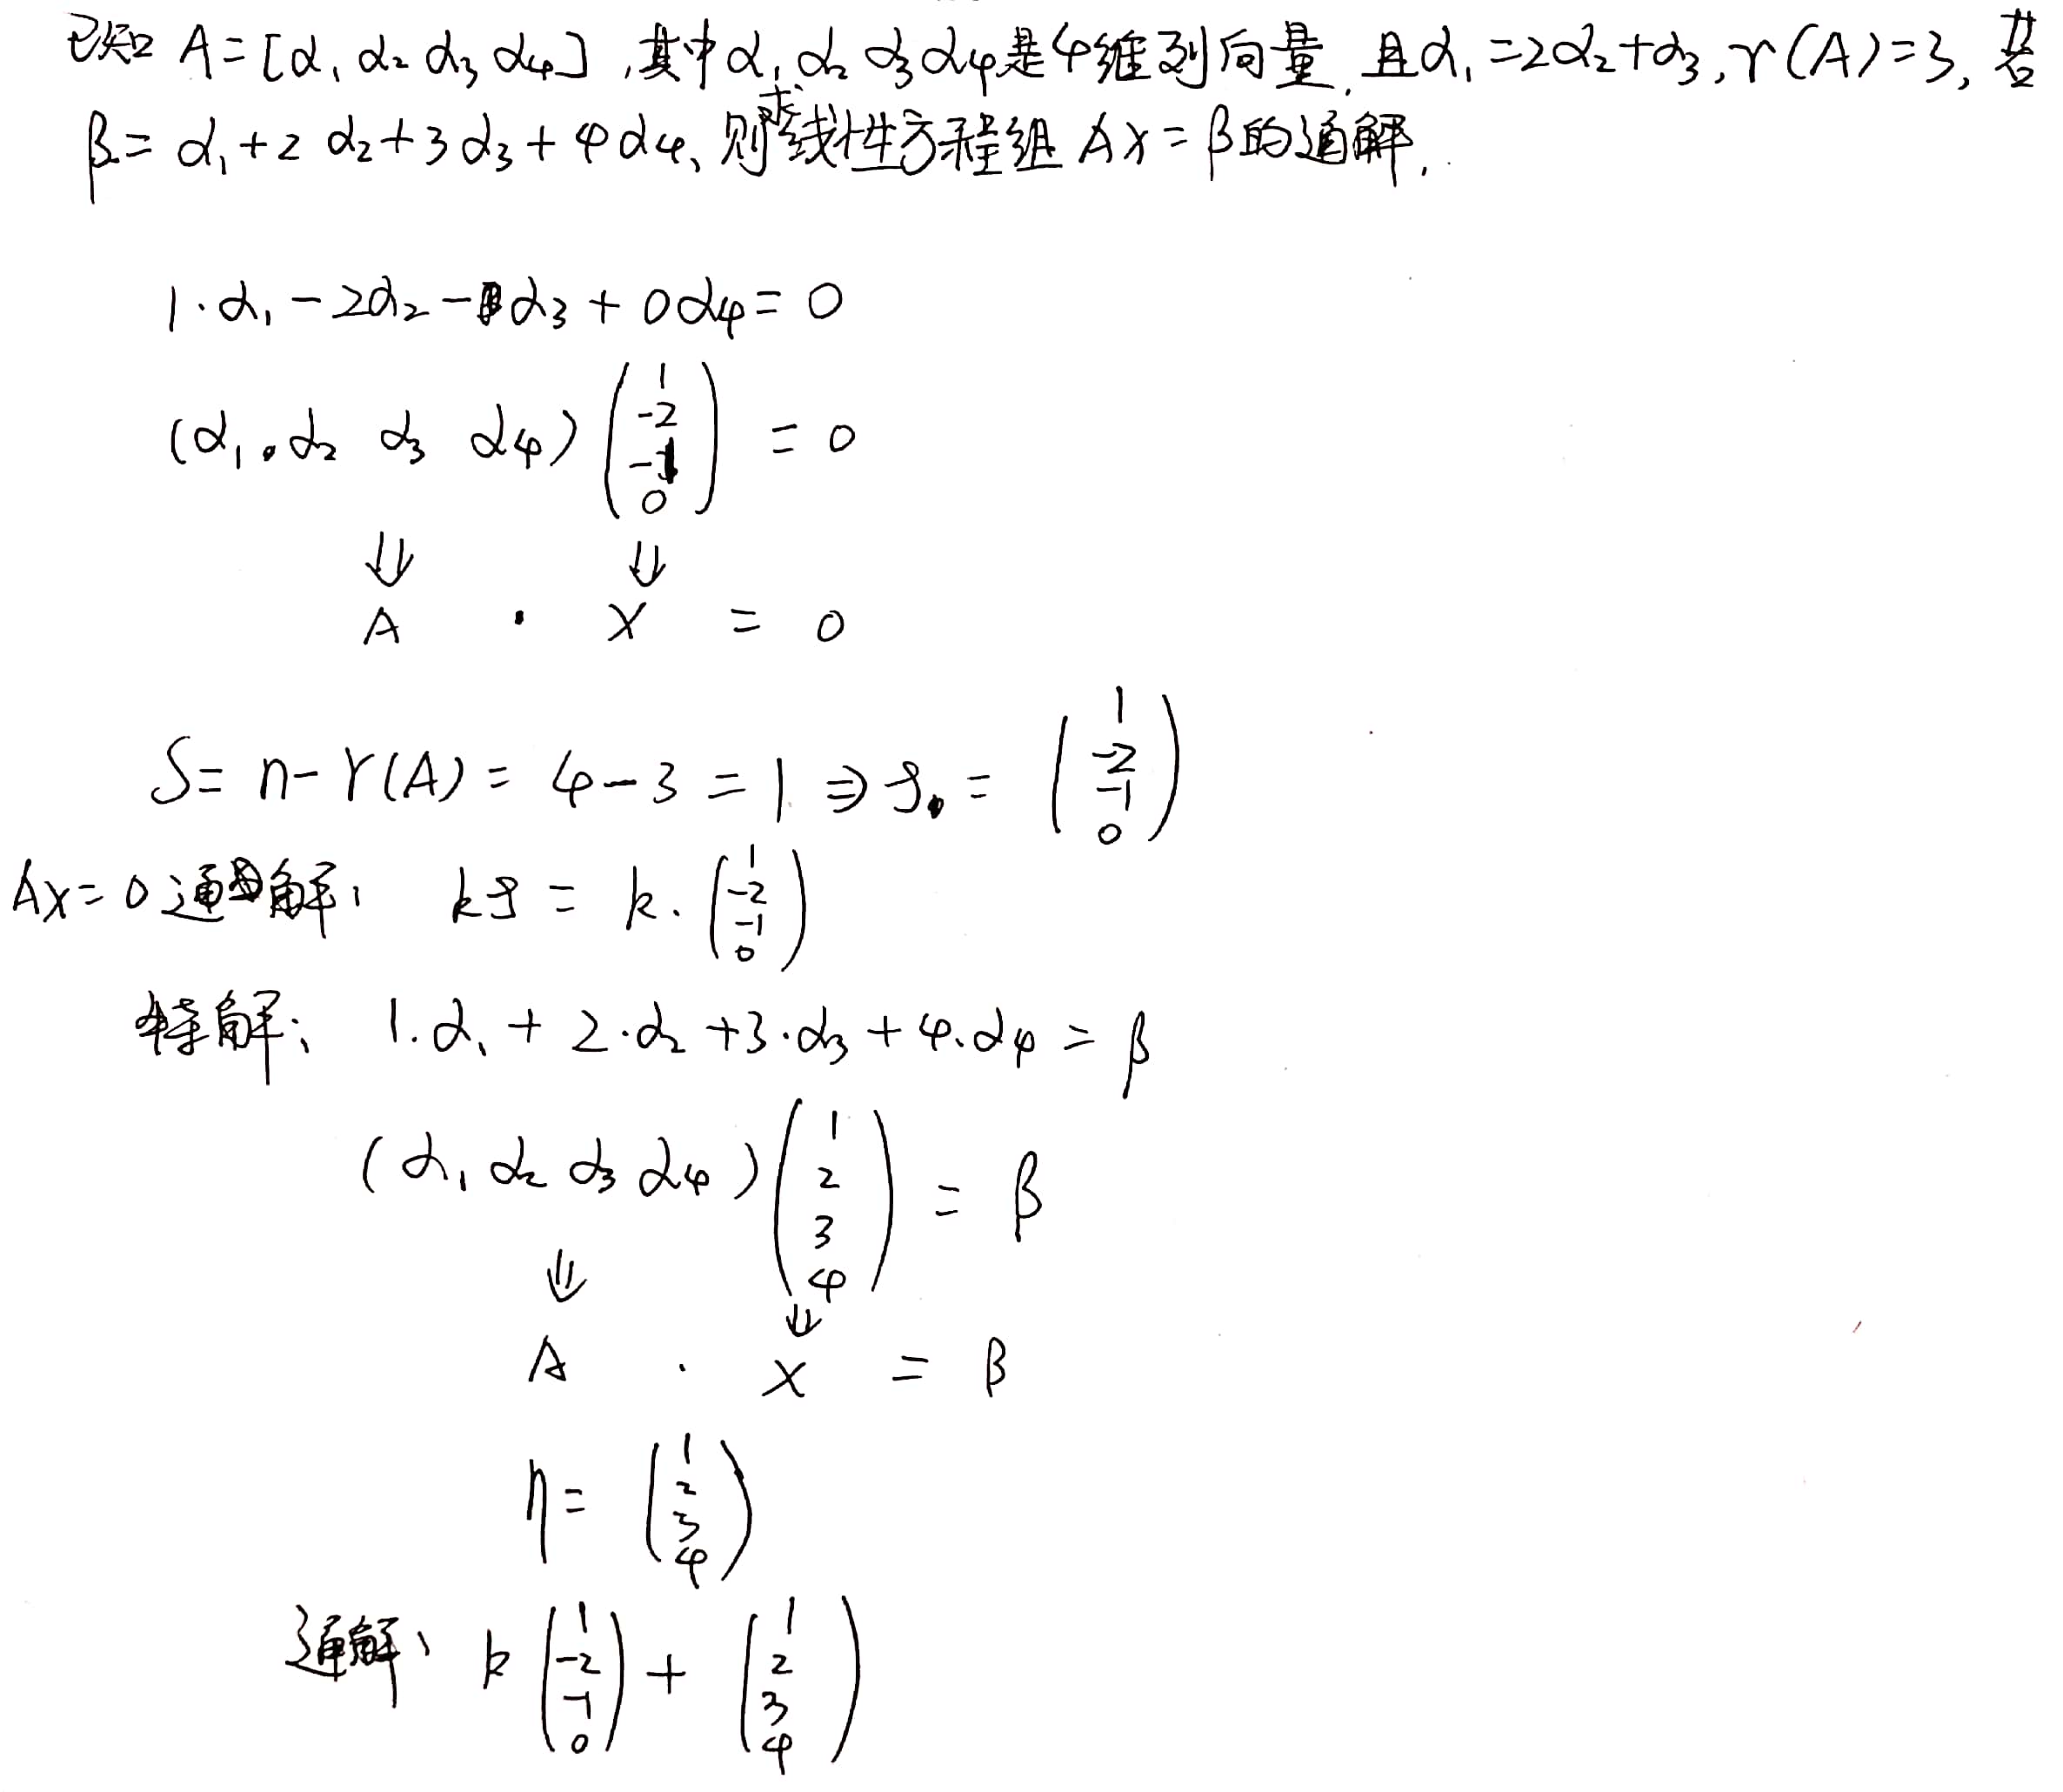 已知 A=[α₁ α₂ α₃ α₄],其中α₁ α₂ α₃ α₄是4维列向量,且α₁=2α₂+α₃, r(A)=3, 若
β=α₁+2α₂+3α₃+4α₄, 则求线性方程组 AX=β的通解.
1·α₁-2α₂-1α₃+0α₄=0
(α₁ α₂ α₃ α₄) (1 -2 -1 0) = 0
⇓ ⇓
A · X = 0
S=n-r(A)=4-3=1 ⇒ ξ = (1 -2 -1 0)
AX=0通解: kξ = k·(1 -2 -1 0)
特解: 1·α₁+2·α₂+3·α₃+4·α₄=β
(α₁ α₂ α₃ α₄) (1 2 3 4) = β
⇓ ⇓
A · X = β
η = (1 2 3 4)
通解: k (1 -2 -1 0) + (1 2 3 4)